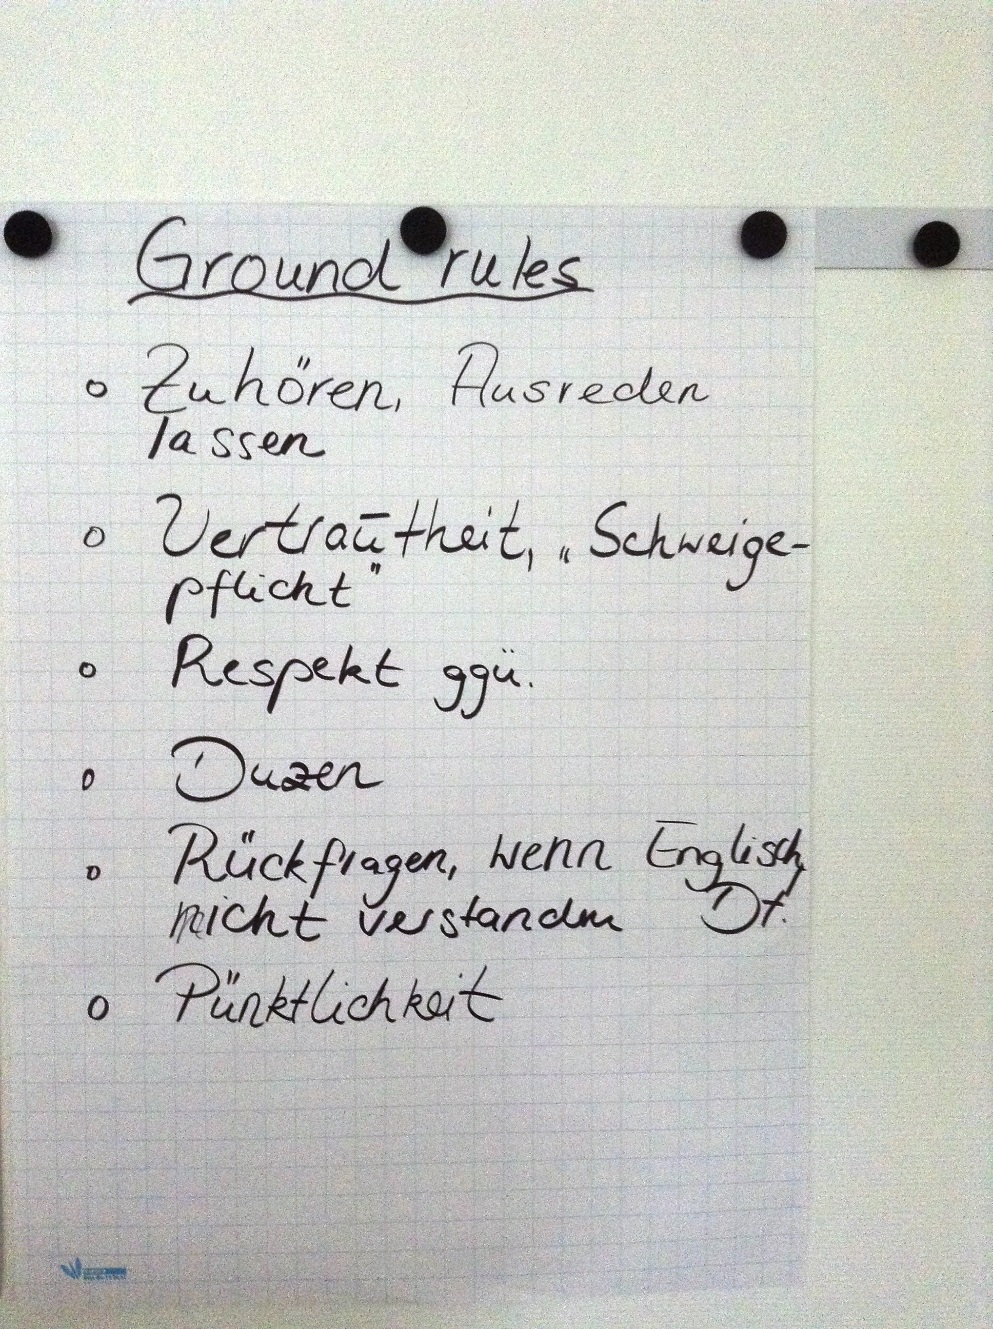 Ground rules
o Zuhören, Ausreden
lassen
o Vertrautheit, „Schweige-
pflicht"
o Respekt ggü.
o Duzen
o Rückfragen, wenn Englisch,
nicht verstanden Dt.
o Pünktlichkeit